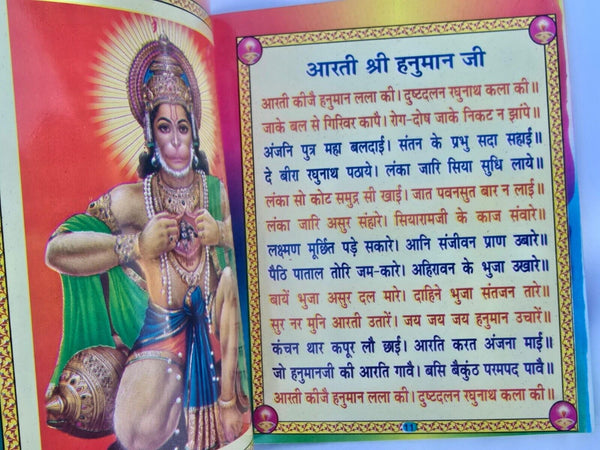 आरती श्री हनुमान जी
आरती कीजै हनुमान लला की। दुष्टदलन रघुनाथ कला की॥
जाके बल से गिरिवर कापै। रोग-दोष जाके निकट न झांपे॥
अंजनि पुत्र महा बलदाई। संतन के प्रभु सदा सहाई॥
दे बीरा रघुनाथ पठाये। लंका जारि सिया सुधि लाये॥
लंका सो कोट समुद्र सी खाई। जात पवनसुत बार न लाई॥
लंका जारि असुर संहारे। सियारामजी के काज संवारे॥
लक्ष्मण मूर्छित पड़े सकारे। आनि संजीवन प्राण उबारे॥
पैठि पाताल तोरि जम-कारे। अहिरावन के भुजा उखारे॥
बायें भुजा असुर दल मारे। दाहिने भुजा संतजन तारे॥
सुर नर मुनि आरती उतारें। जय जय जय हनुमान उचारें॥
कंचन थार कपूर लौ छाई। आरति करत अंजना माई॥
जो हनुमानजी की आरति गावै। बसि बैकुंठ परमपद पावै॥
आरती कीजै हनुमान लला की। दुष्टदलन रघुनाथ कला की॥